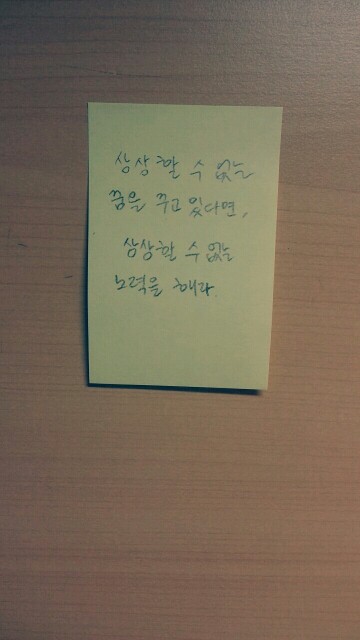 상상할 수 없는
꿈을 꾸고 있다면,
상상할 수 없는
노력을 해라